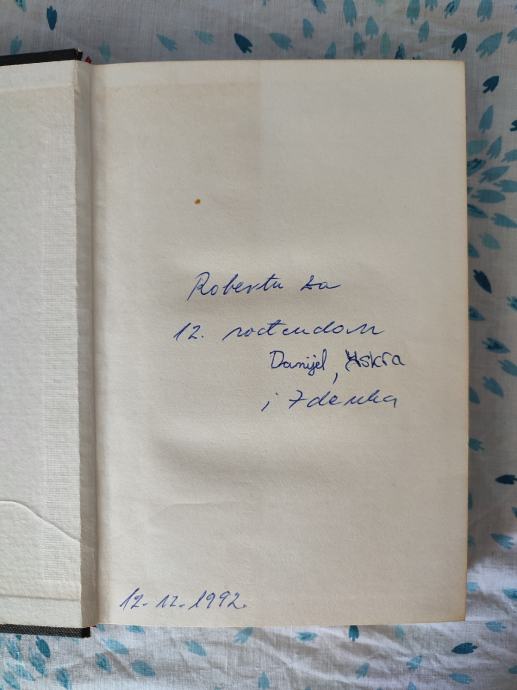 Robertu za
12. rođendan
Danijel, Iskra
i Zdenka
12.12.1992.